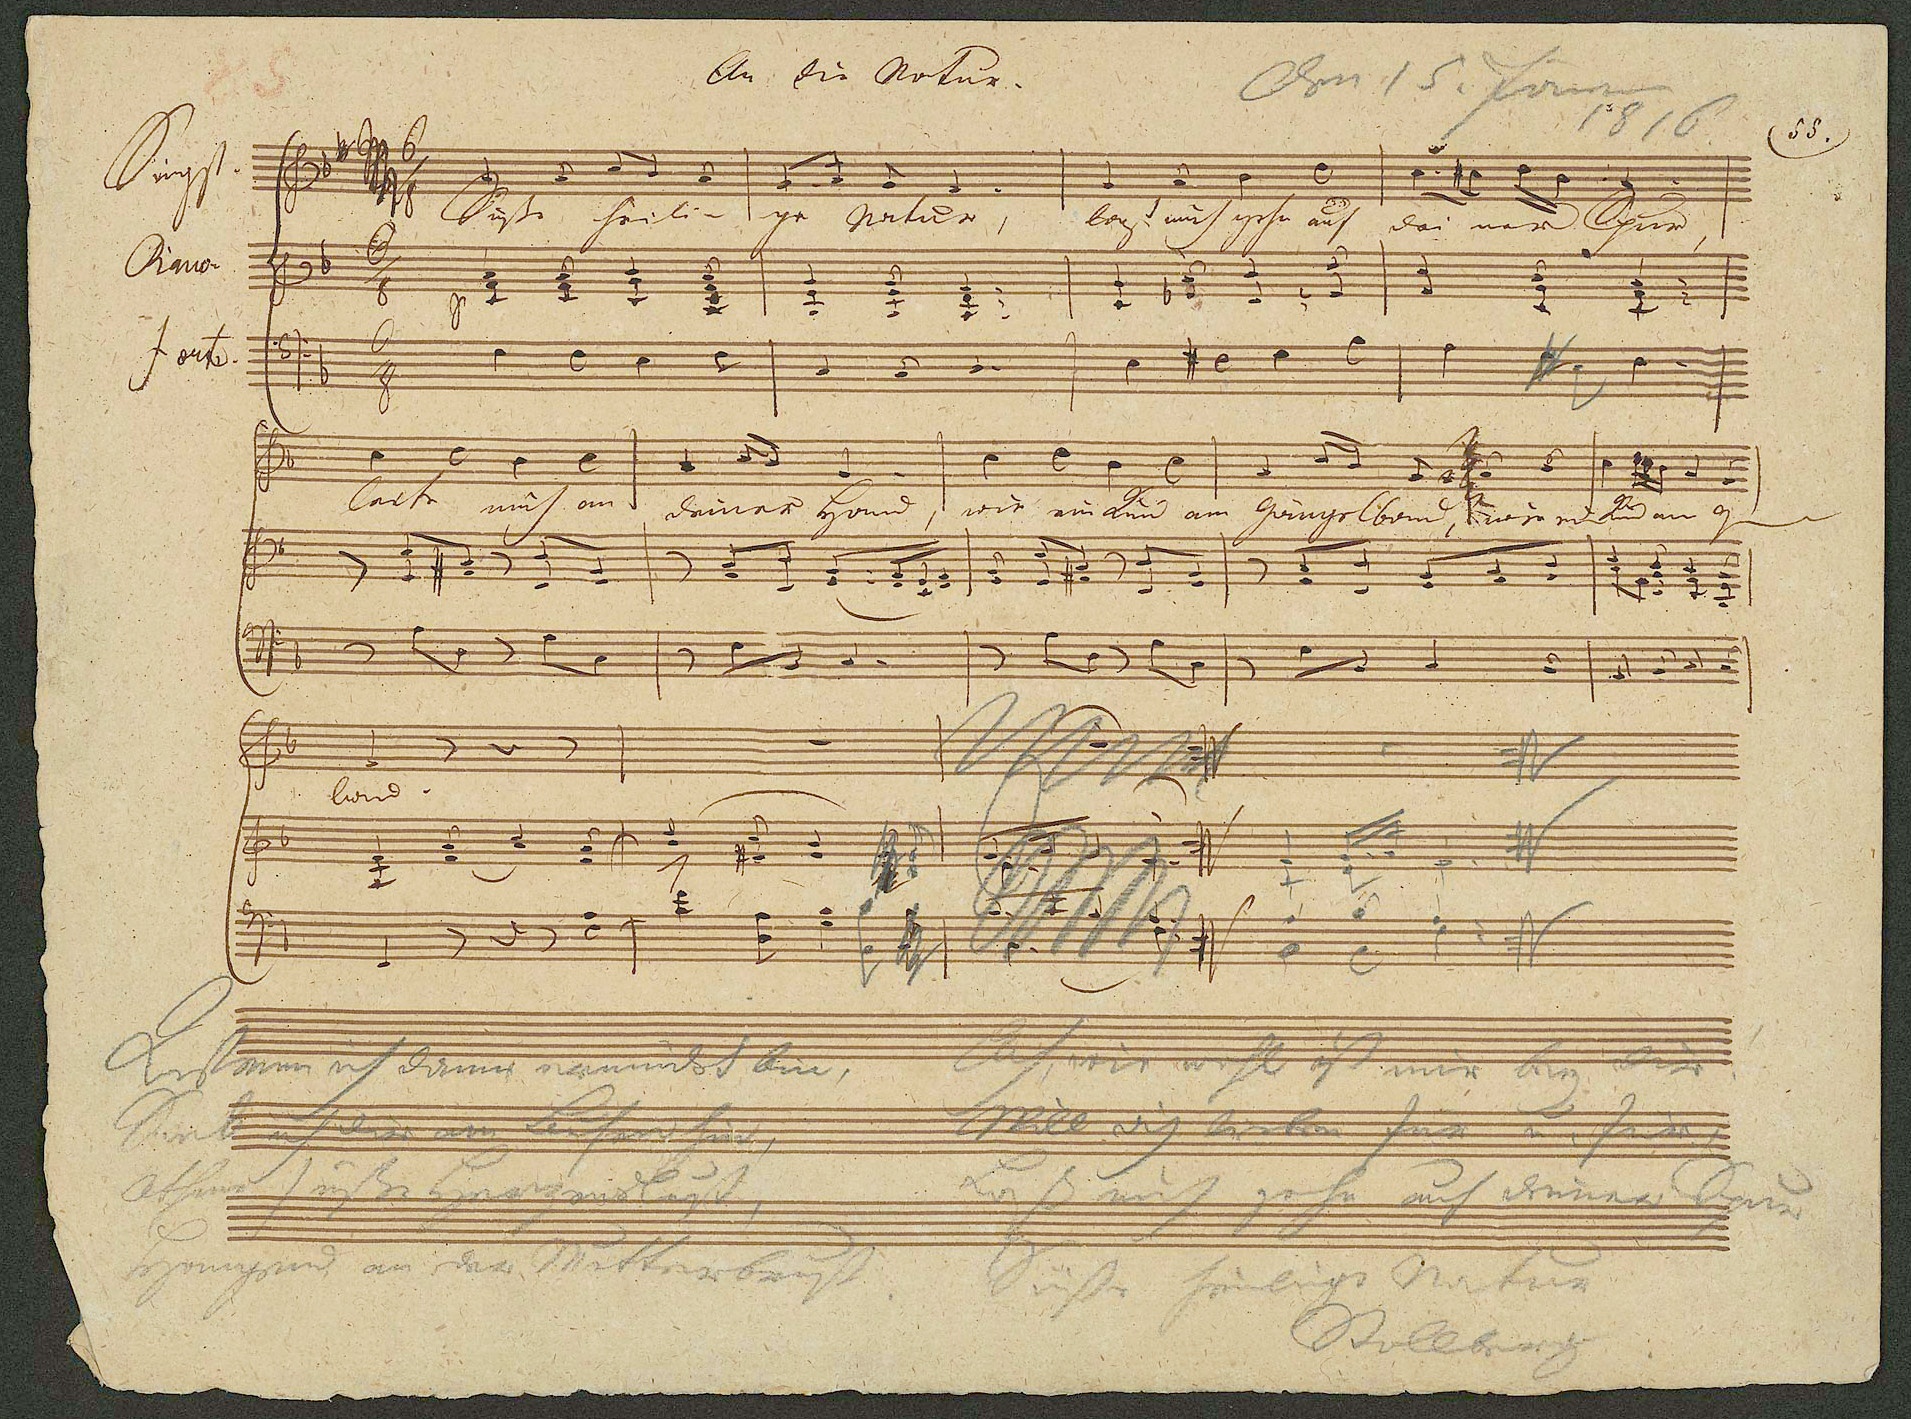 An die Natur.
Den 15. Jänner
1816
55.
Singst.
Süße heili- ge Natur, laß mich gehn auf dei ner Spur,
Piano-
Forte.
leite mich an deiner Hand, wie ein Kind am Gängelband, wie ein Kind am G
band.
Laß mich gehn auf deiner Spur
Ach, wie wohl ist mir bey dir,
Sink ich dir am Busen hin,
Will dich lieben für u. für,
Athme süße Himmelslust,
Hangend an der Mutterbrust.
Süße heilige Natur
Stollberg